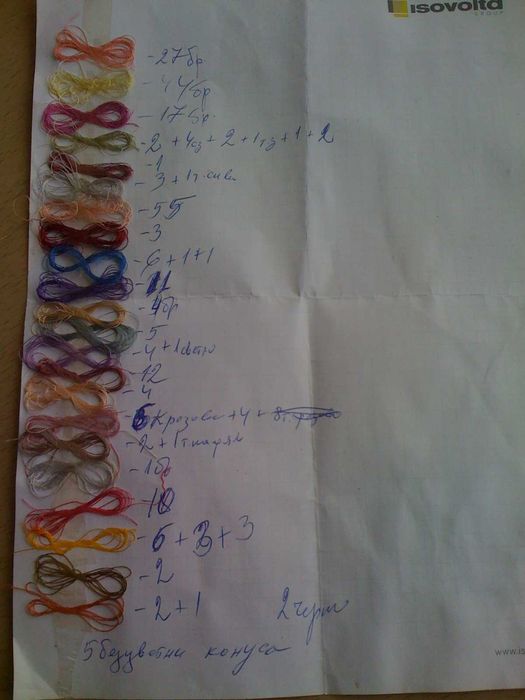 isovolta
GROUP
-27бр
-44бр
-17бр.
-2+4cз+2+1тз+1+2
-1
-3+1т.сива
-55
-3
-6+1+1
-11
-4бр
-5
-4+1свет
-12
-4
-6 К розова+4+
-2+1т.кафяв
-1бр
-18
-6+3+3
-2
-2+1 2 черни
5 безцветни конуса
www.is